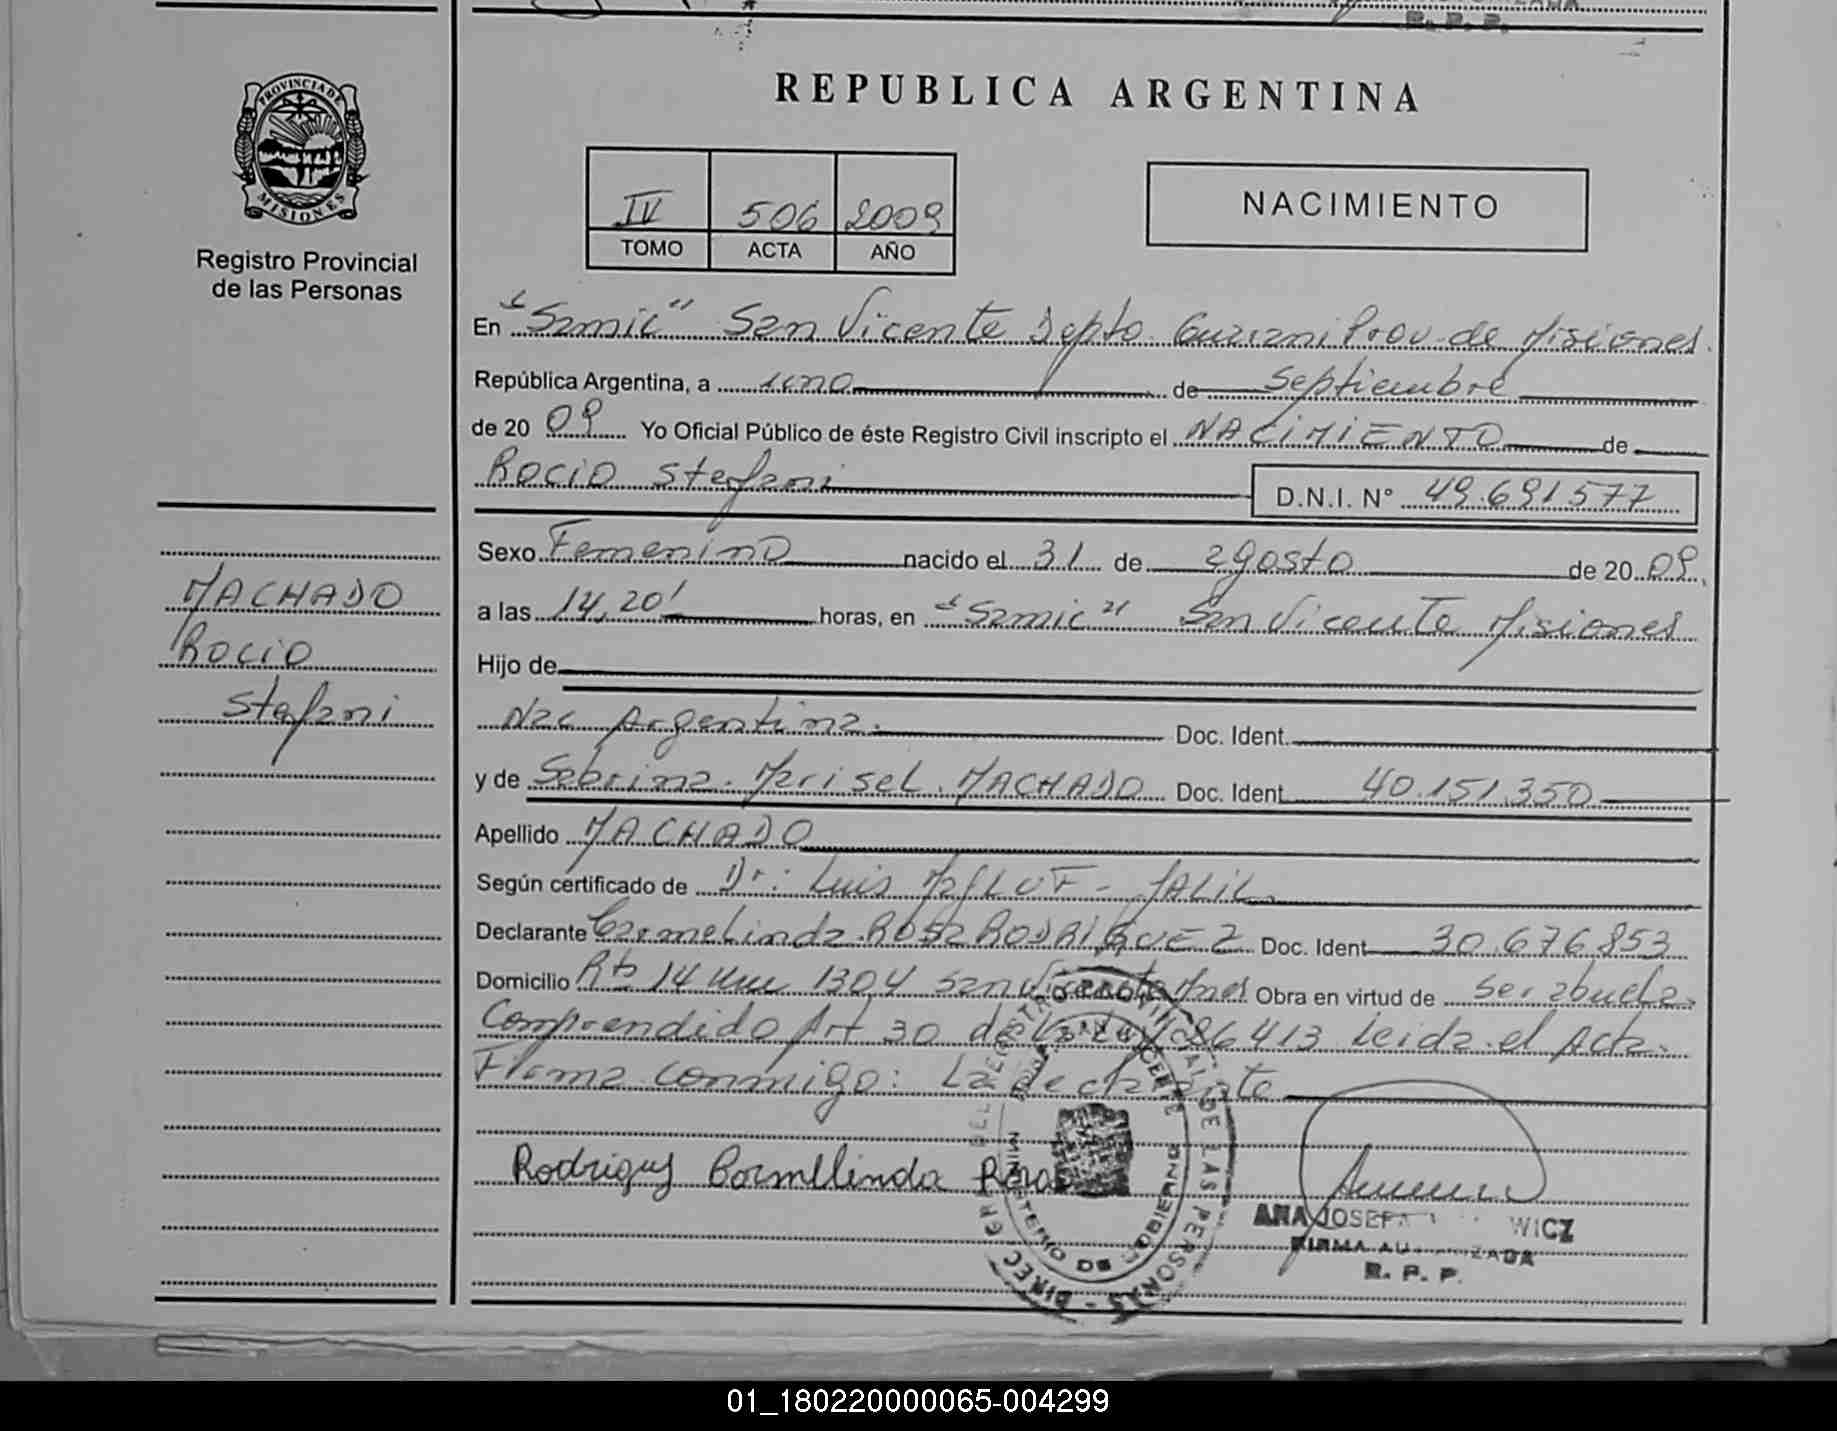 R. P. P.
PROVINCIA DE
MISIONES
Registro Provincial
de las Personas
REPUBLICA ARGENTINA
IV 506 2009
TOMO ACTA AÑO
NACIMIENTO
En "Samic" San Vicente Depto. Guarani Prov. de Misiones.
República Argentina, a uno de Septiembre
de 20 09 Yo Oficial Público de éste Registro Civil inscripto el NACIMIENTO de
ROCIO Stefani D.N.I. N° 49.691.577
Sexo Femenino nacido el 31 de agosto de 20 09,
a las 14,20' horas, en "Samic" San Vicente Misiones
Hijo de
Nac Argentina. Doc. Ident.
y de Sabrina. Marisel. MACHADO Doc. Ident 40.151.350
Apellido MACHADO
Según certificado de Dr: Luis - JALIL
Declarante Carmelinda. Rosa RODRIGUEZ Doc. Ident 30.676.853
Domicilio Rta 14 km 1304 San Vicente Mnes Obra en virtud de Ser abuela.
Comprendido Art 30 de la Ley 86413 leida el Acta.
Firma conmigo: La Declarante
MACHADO
Rocio
Stefani
Rodriguez Carmelinda Rosa
DIREC GRAL DEL REGISTRO PROVINCIAL DE LAS PERSONAS -
MINISTERIO DE GOBIERNO
SAN VICENTE
ANA JOSEFA WICZ
FIRMA AUTORIZADA
R. P. P.
01_180220000065-004299